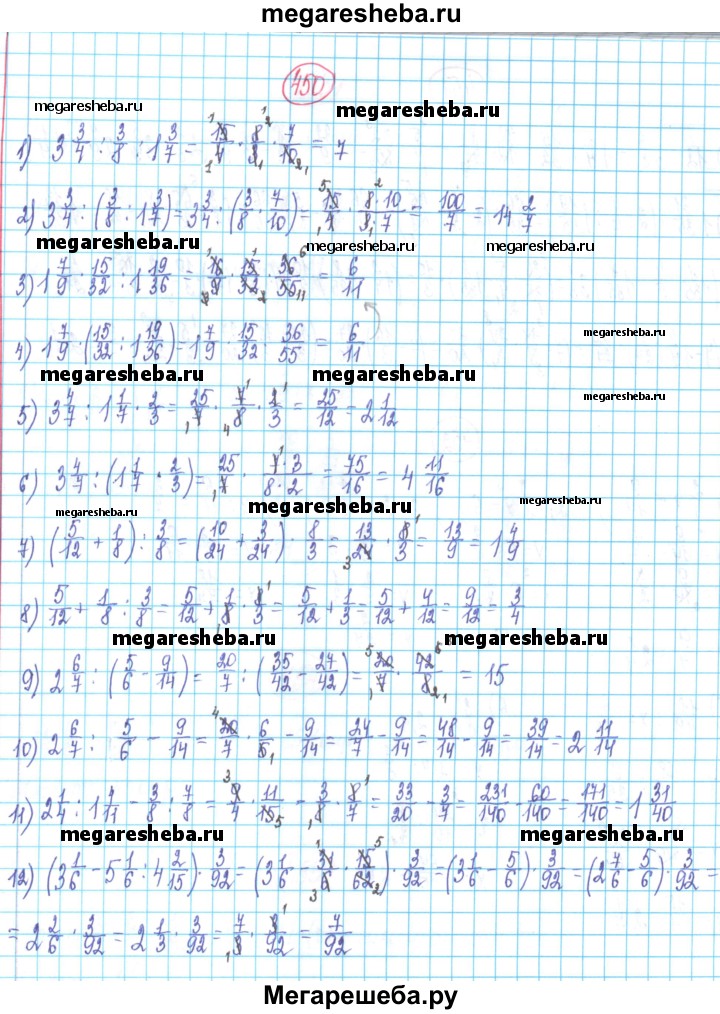 megaresheba.ru
450
megaresheba.ru
megaresheba.ru
1) 3 3/4 : 3/8 : 1 3/7 = 15/4 · 8/3 · 7/10 = 7
2) 3 3/4 : (3/8 : 1 3/7) = 3 3/4 : (3/8 · 7/10) = 15/4 · 8·10/3·7 = 100/7 = 14 2/7
megaresheba.ru
megaresheba.ru
megaresheba.ru
3) 1 7/9 · 15/32 : 1 19/36 = 16/9 · 15/32 · 36/55 = 6/11
4) 1 7/9 · (15/32 : 1 19/36) = 1 7/9 · 15/32 · 36/55 = 6/11
megaresheba.ru
megaresheba.ru
megaresheba.ru
5) 3 4/7 : 1 1/7 · 2/3 = 25/7 · 7/8 · 2/3 = 25/12 = 2 1/12
megaresheba.ru
6) 3 4/7 : (1 1/7 · 2/3) = 25/7 · 7·3/8·2 = 75/16 = 4 11/16
megaresheba.ru
megaresheba.ru
megaresheba.ru
7) (5/12 + 1/8) : 3/8 = (10/24 + 3/24) · 8/3 = 13/24 · 8/3 = 13/9 = 1 4/9
8) 5/12 + 1/8 : 3/8 = 5/12 + 1/8 · 8/3 = 5/12 + 1/3 = 5/12 + 4/12 = 9/12 = 3/4
megaresheba.ru
megaresheba.ru
9) 2 6/7 : (5/6 - 9/14) = 20/7 : (35/42 - 27/42) = 20/7 · 42/8 = 15
10) 2 6/7 : 5/6 - 9/14 = 20/7 · 6/5 - 9/14 = 24/7 - 9/14 = 48/14 - 9/14 = 39/14 = 2 11/14
11) 2 1/4 : 1 4/11 - 3/8 : 7/8 = 9/4 · 11/15 - 3/8 · 8/7 = 33/20 - 3/7 = 231/140 - 60/140 = 171/140 = 1 31/40
megaresheba.ru
megaresheba.ru
12) (3 1/6 - 5 1/6 : 4 2/15) · 3/92 = (3 1/6 - 31/6 · 15/62) · 3/92 = (3 1/6 - 5/6) · 3/92 = (2 7/6 - 5/6) · 3/92 =
= 2 2/6 · 3/92 = 2 1/3 · 3/92 = 7/3 · 3/92 = 7/92
Мегарешеба.ру